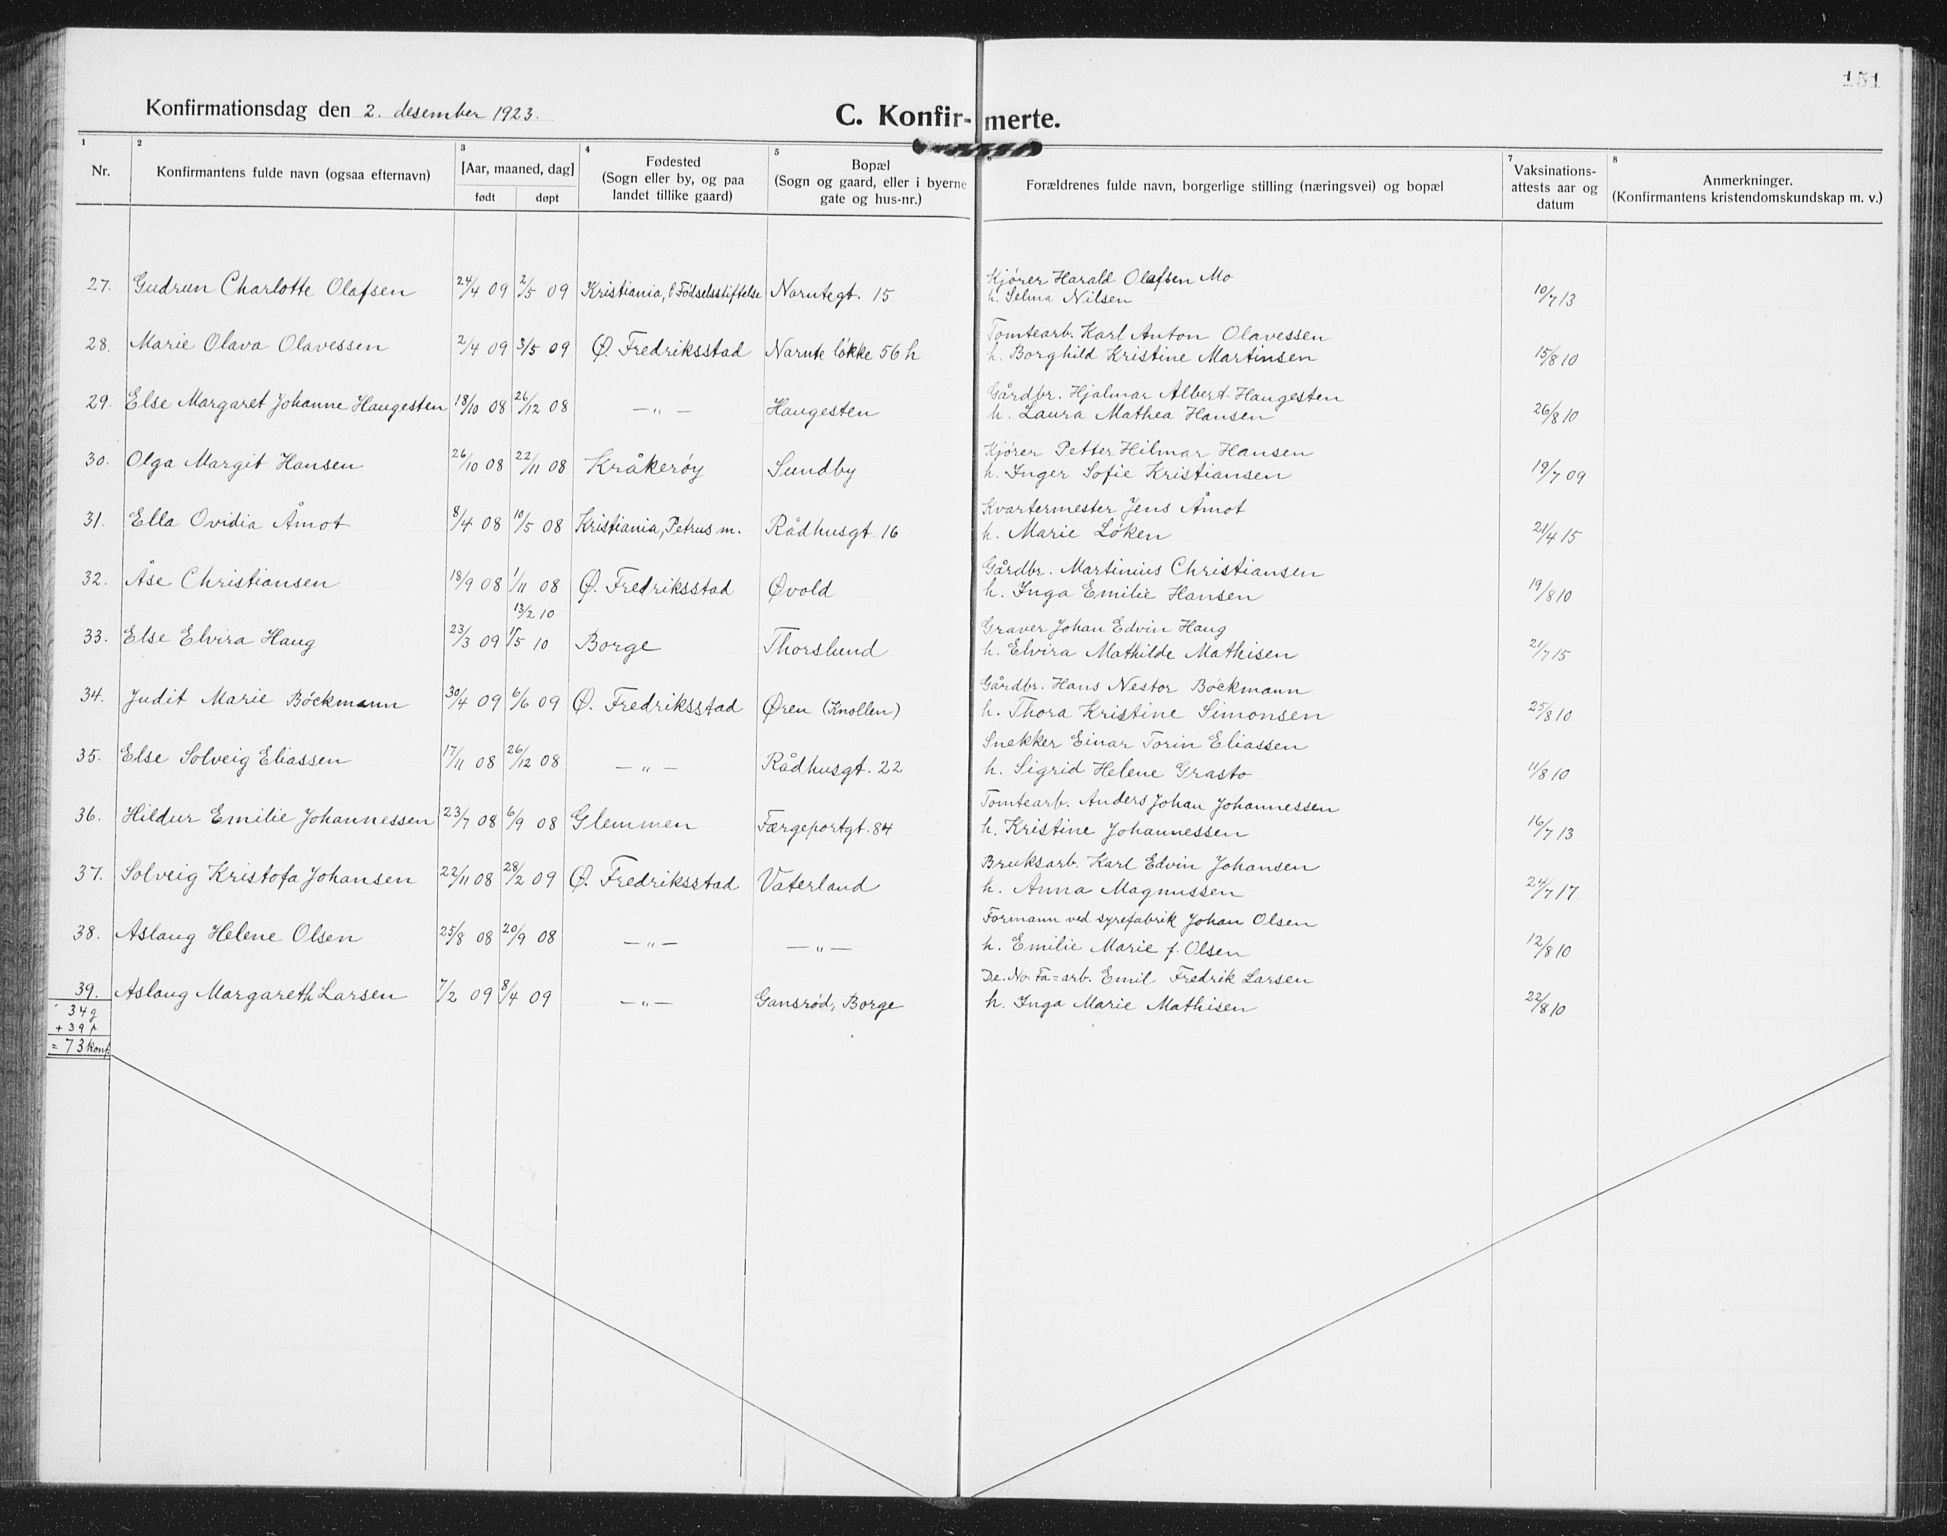 151
Konfirmationsdag den 2. desember 1923.
C. Konfir- merte.
1 2 3 4 5 7 8
Nr.
Konfirmantens fulde navn (ogsaa efternavn)
[Aar, maaned, dag]
født døpt
Fødested
(Sogn eller by, og paa
landet tillike gaard)
Bopæl
(Sogn og gaard, eller i byerne
gate og hus-nr.)
Forældrenes fulde navn, borgerlige stilling (næringsvei) og bopæl
Vaksinations-
attests aar og
datum
Anmerkninger.
(Konfirmantens kristendomskundskap m. v.)
Kjører Harald Olafsen Mo
27. Gudrun Charlotte Olafsen 24/4 09 2/5 09 Kristiania, Fødselsstiftelse Narutegt. 15 h. Selma Nilsen 10/7 13
Tomtearb. Karl Anton Olavessen
28. Marie Olava Olavessen 2/4 09 3/5 09 Ø. Fredriksstad Narute løkke 56 h h. Borghild Kristine Martinsen 15/8 10
Gårdbr. Hjalmar Albert Haugesten
29. Else Margaret Johanne Haugesten 18/10 08 26/12 08 —"— Haugesten h. Laura Mathea Hansen 26/8 10
Kjører Petter Hilmar Hansen
30. Olga Margit Hansen 26/10 08 22/11 08 Kråkerøy Sundby h. Inger Sofie Kristiansen 19/7 09
Kvartermester Jens Åmot
31. Ella Ovidia Åmot 8/4 08 10/5 08 Kristiania, Petrus m. Rådhusgt. 16 h. Marie Løken 21/4 15
Gårdbr. Martinius Christiansen
32. Åse Christiansen 18/9 08 1/11 08 Ø. Fredriksstad Øvold h. Inga Emilie Hansen 19/8 10
13/2 10
Graver Johan Edvin Haug
33. Else Elvira Haug 23/3 09 1/5 10 Borge Thorslund h. Elvira Mathilde Mathisen 21/7 15
Gårdbr. Hans Nestor Bøckmann
34. Judit Marie Bøckmann 30/4 09 6/6 09 Ø. Fredriksstad Øren (Knollen) h. Thora Kristine Simonsen 25/8 10
Snekker Einar Torin Eliassen
35. Else Solveig Eliassen 17/11 08 26/12 08 —"— Rådhusgt. 22 h. Sigrid Helene Grasto 11/8 10
Tomtearb. Anders Johan Johannessen
36. Hildur Emilie Johannessen 23/7 08 6/9 08 Glemmen Færgeportgt. 84 h. Kristine Johannessen 16/7 13
Bruksarb. Karl Edvin Johansen
37. Solveig Kristofa Johansen 22/11 08 28/2 09 Ø. Fredriksstad Vaterland h. Anna Magnussen 24/7 17
Formann ved syrefabrik Johan Olsen
38. Aslaug Helene Olsen 25/8 08 20/9 08 —"— —"— h. Emilie Marie f. Olsen 12/8 10
De. No. Fa=arb. Emil Fredrik Larsen
39. Aslaug Margareth Larsen 7/2 09 8/4 09 —"— Gansrød, Borge h. Inga Marie Mathisen 22/8 10
34 g
+ 39 p
= 73 konf.